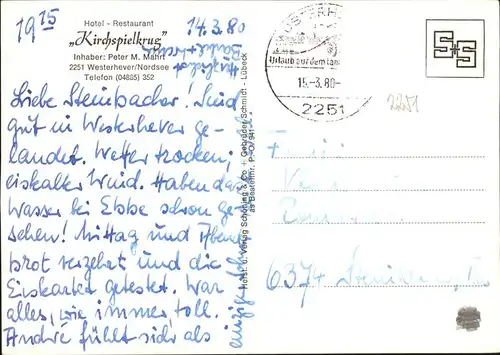 19 15
14.3.80
Hotel - Restaurant
„Kirchspielkrug"
Inhaber: Peter M. Mahrt
2251 Westerhever/Nordsee
Telefon (04865) 352
Liebe Steinbacher! Sind
gut in Westerhever ge-
landet. Wetter trocken,
eiskalter Wind. Haben das
Wasser bei Ebbe schon ge-
sehen! Mittag und Abend
brot verzehrt und die
Eiskarte getestet. War
alles, wie immer toll.
André fühlt sich als
einzige
Herzlichst
Horst. u. Verlag Schöning & Co + Gebrüder Schmidt - Lübeck
Urlaub auf dem Lan
15.-3.80-
2251
2251
S+S
6374